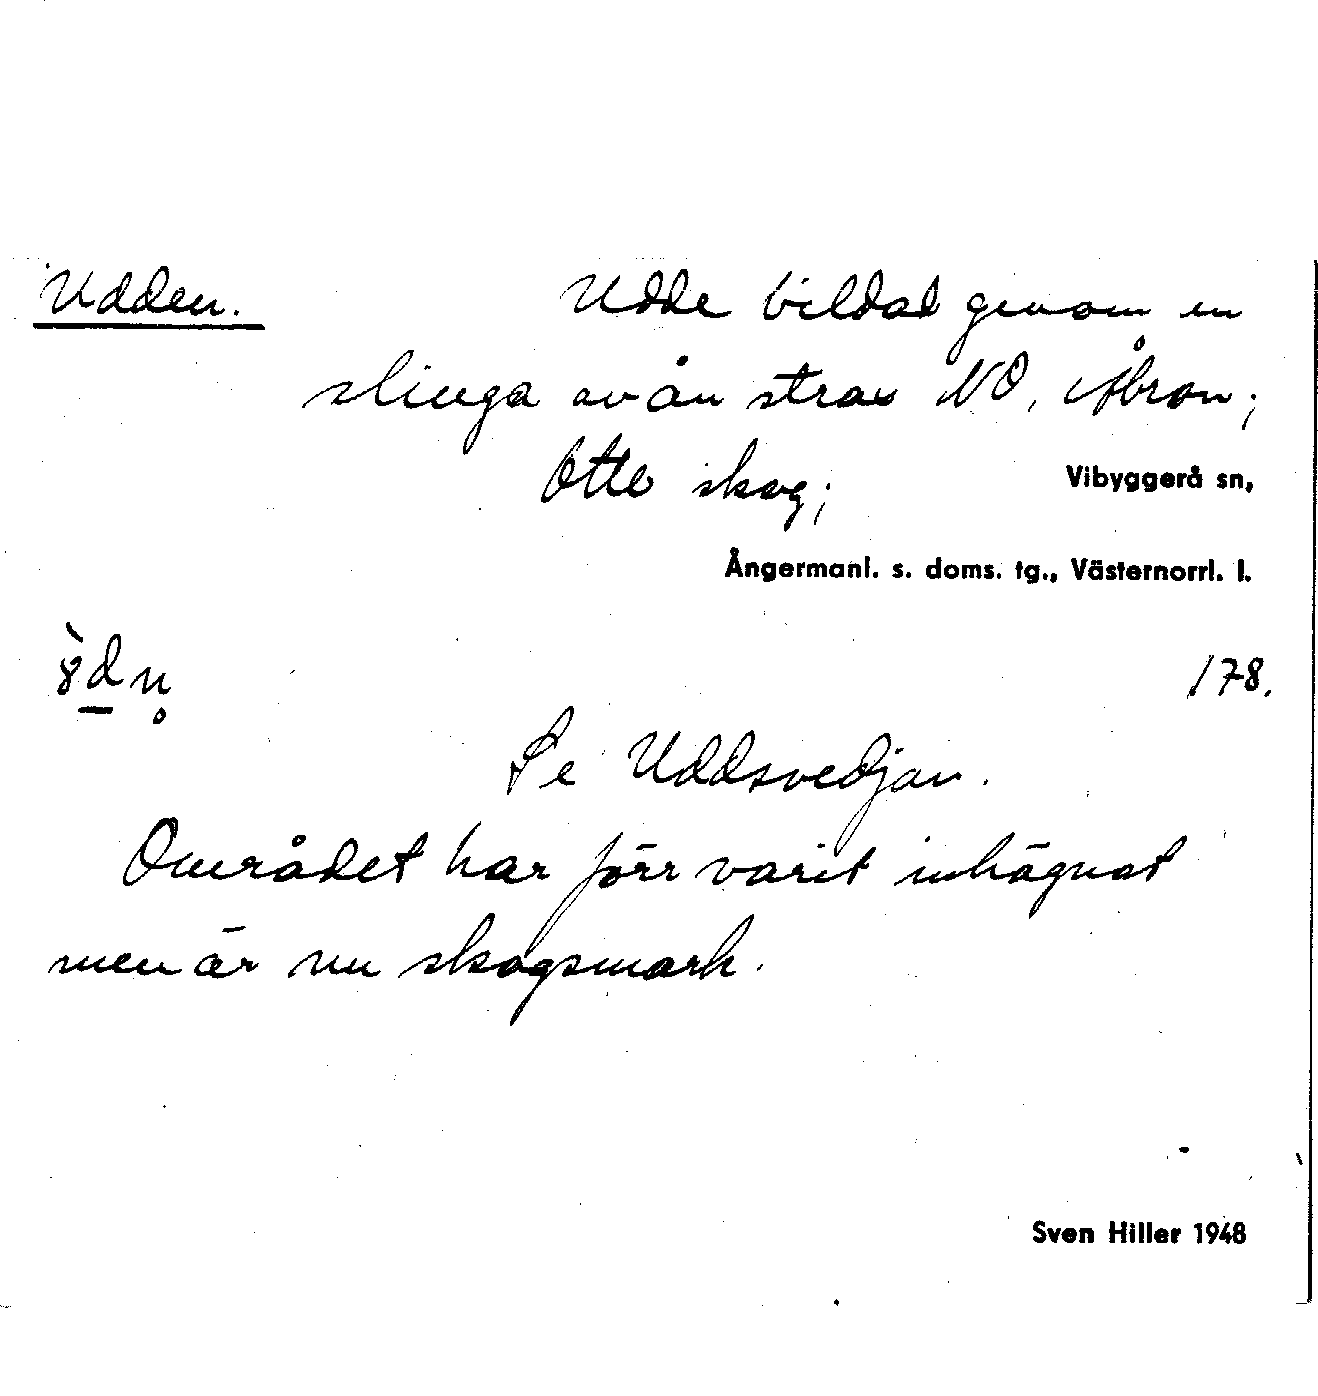 Udden. Udde bildad genom en
slinga av ån strax NO, Åbron;
Otte skog; Vibyggerå sn,
Ångermanl. s. doms. tg., Västernorrl. l.
178.
Se Uddsvedjan.
Området har förr varit inhägnat
men är nu skogsmark.
Sven Hiller 1948